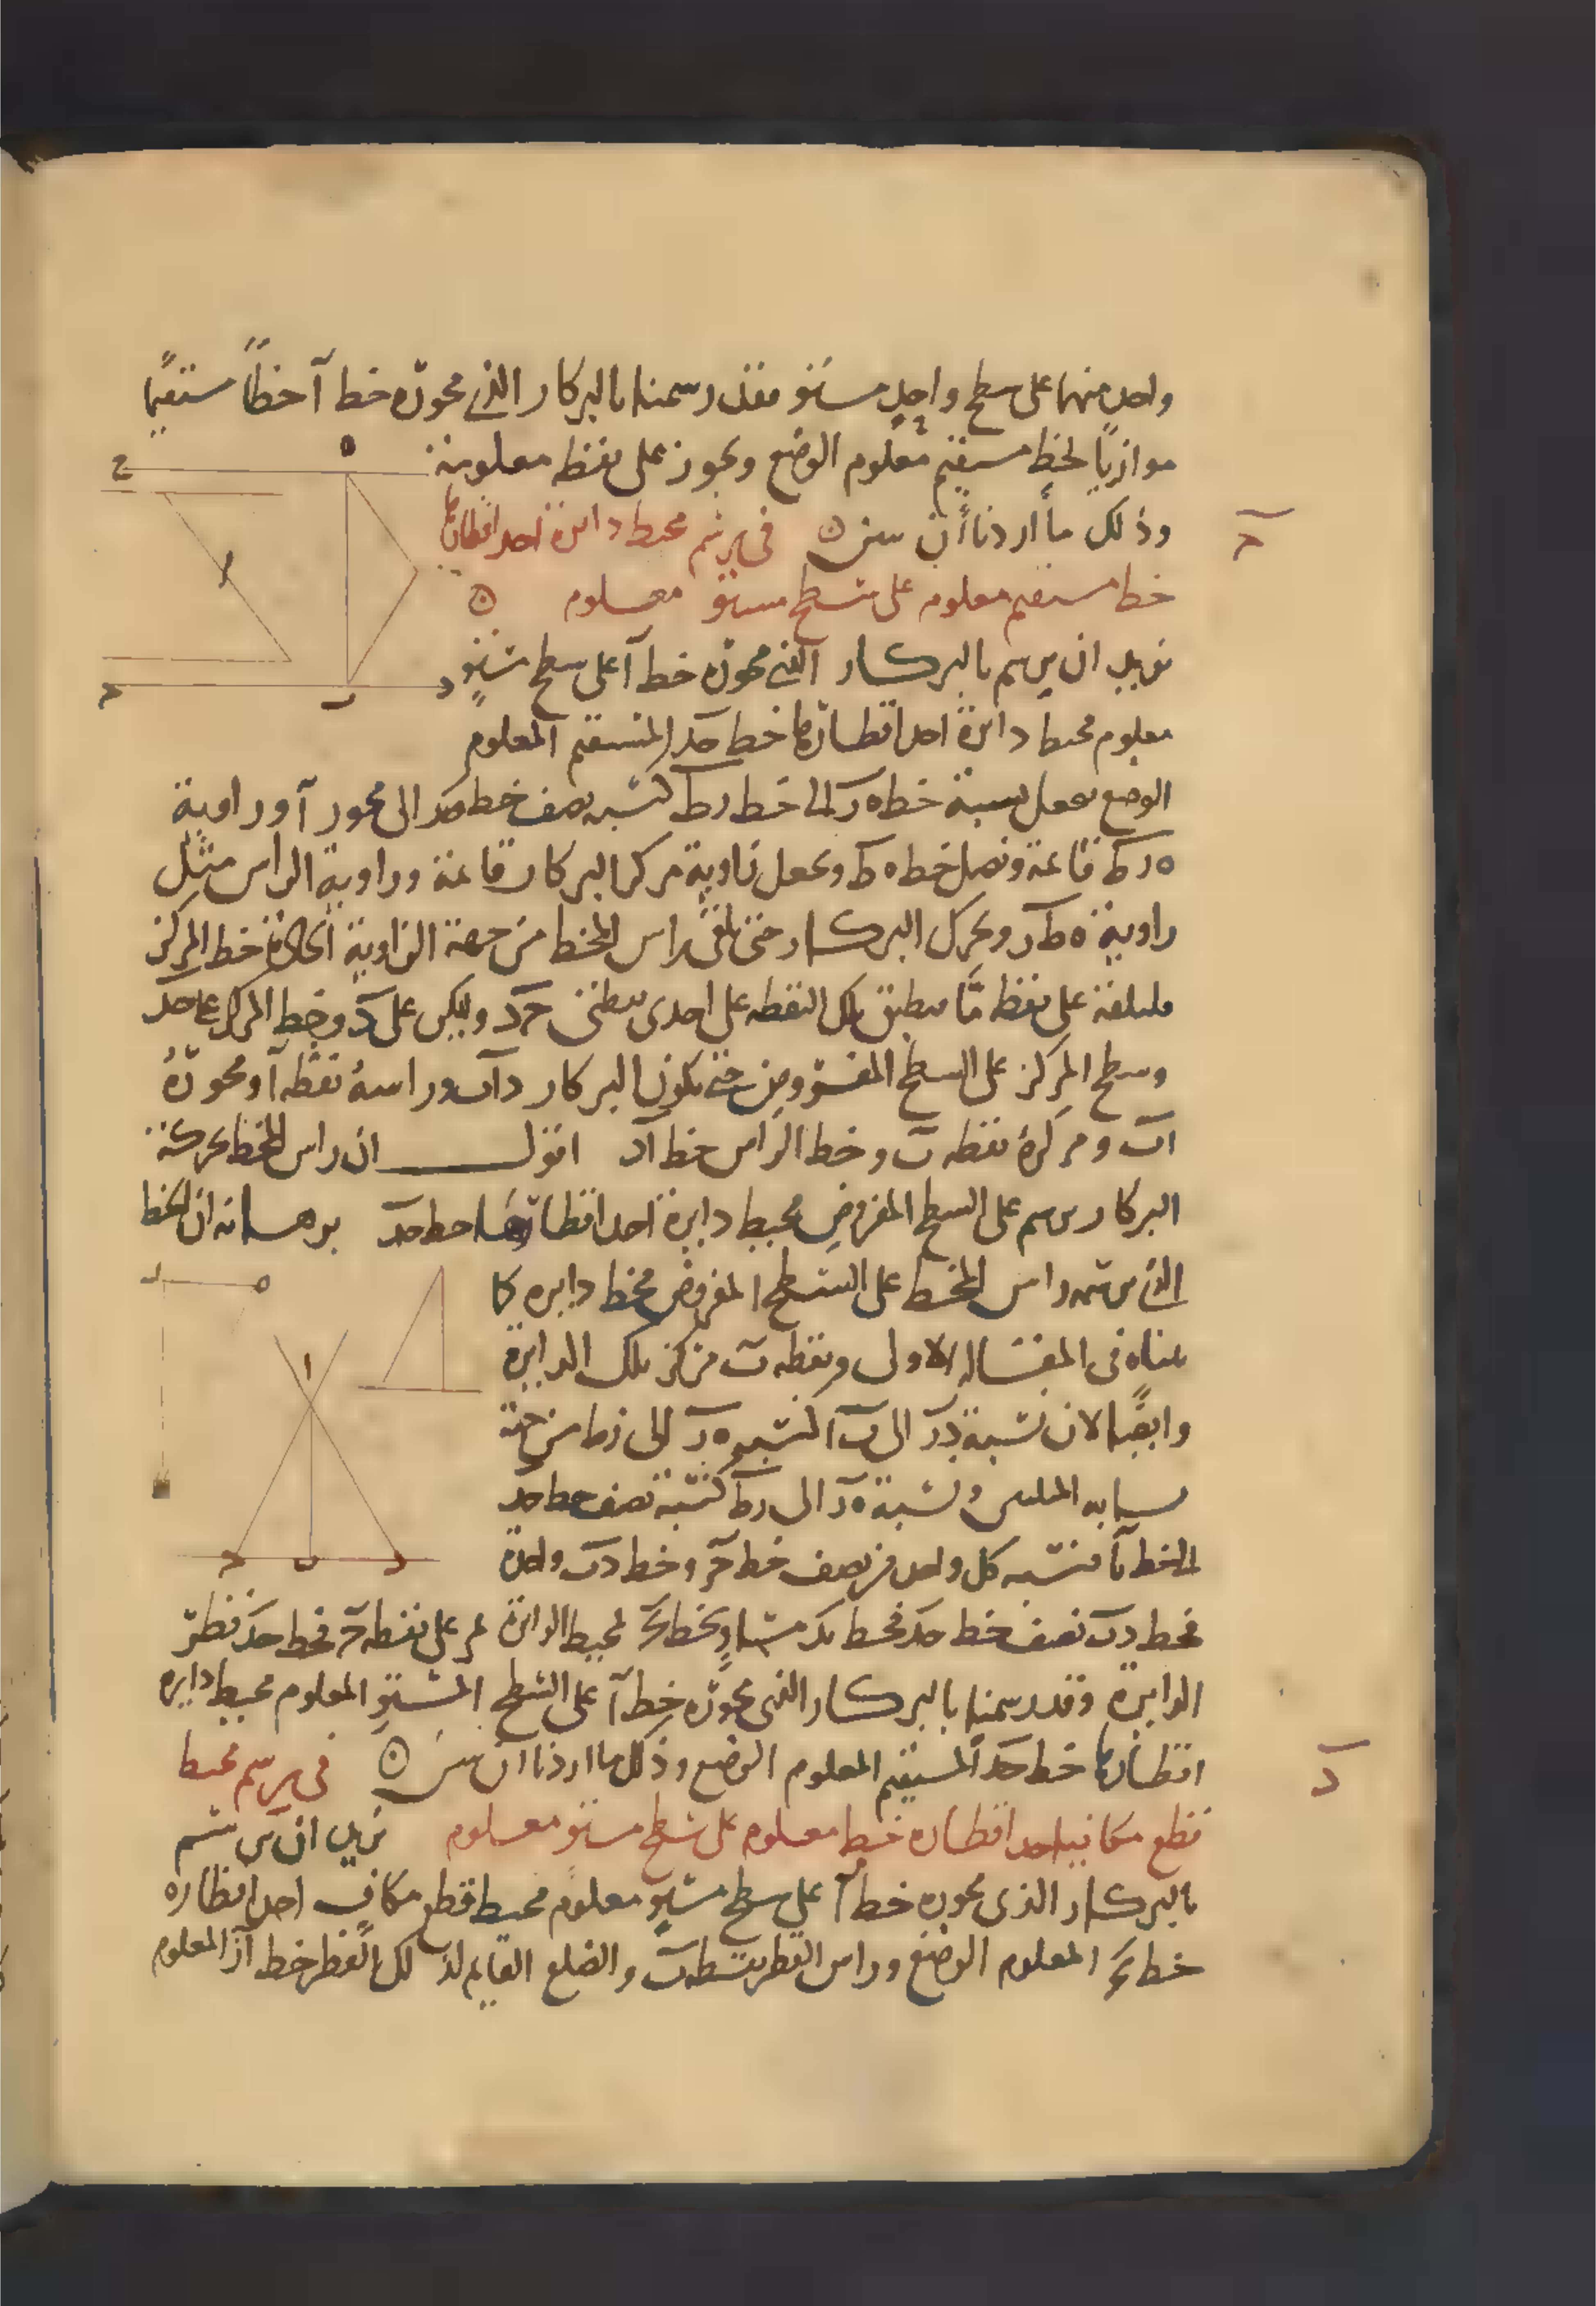 واحد منهما على سطح واحد مستو فقد رسمنا بالبركار الذى محوره خط آ خطاً مستقيماً
موازياً لخط مستقيم معلوم الوضع ويجوز على نقطة معلومة
وذلك ما أردنا أن نبين في رسم محيط دائرة احد اقطارها
خط مستقيم معلوم على سطح مستو معلوم
نريد ان نرسم بالبركار الذى محوره خط آ على سطح مستو
معلوم محيط دائرة احد اقطارها خط حد المستقيم المعلوم
الوضع نجعل نسبة خط ه ر الى خط رط كنسبة نصف خط حد الى محور آ وزاوية
ه ر ط قائمة ونصل خط ه ط ونجعل زاوية مركز البركار قائمة وزاوية الراس مثل
زاوية ه ط ر ونحرك البركار حتى يلقى راس المخط من جهة الزاوية الحادة خط المركز
فليلقه على نقطة ما نطبق تلك النقطه على احدى نقطتى ح د وليكن على د وخط المركز على حد
وسطح المركز على السطح المفروض حتى يكون البركار داب وراسه نقطة آ ومحوره
اب ومركزه نقطه ب وخط الراس خط اد اقول ان راس المخط بحركة
البركار يرسم على السطح المفروض محيط دايرة احد اقطارها خط حد برهانه ان الخط
الذى يرسمه راس المخط على السطح المفروض محيط دايره كا
بيناه فى المقالة الاولى ونقطه ب مركز تلك الدايرة
وايضا لان نسبة دب الى ب ا كنسبة ه ر الى رط من جهة
تشابه المثلثين ونسبة ه ر الى رط كنسبة نصف خط حد
الى خط با فنسبة كل واحد من نصف خط حد وخط دب واحدة
فخط دب نصف خط حد فخط بد مساو لخط بح فمحيط الدايرة يمر على نقطة ح فخط حد قطر
الدايرة وقد رسمنا بالبركار الذى محوره خط آ على السطح المستو المعلوم محيط دايره
اقطارها خط حد المستقيم المعلوم الوضع وذلك ما اردنا ان نبين في رسم محيط
قطع مكافى احد اقطاره خط معلوم على سطح مستو معلوم نريد ان نرسم
بالبركار الذى محوره خط آ على سطح مستو معلوم محيط قطع مكاف احد اقطاره
خط المعلوم الوضع وراس القطر نقطة ب والضلع القايم لذلك القطر خط المعلوم
ح
د